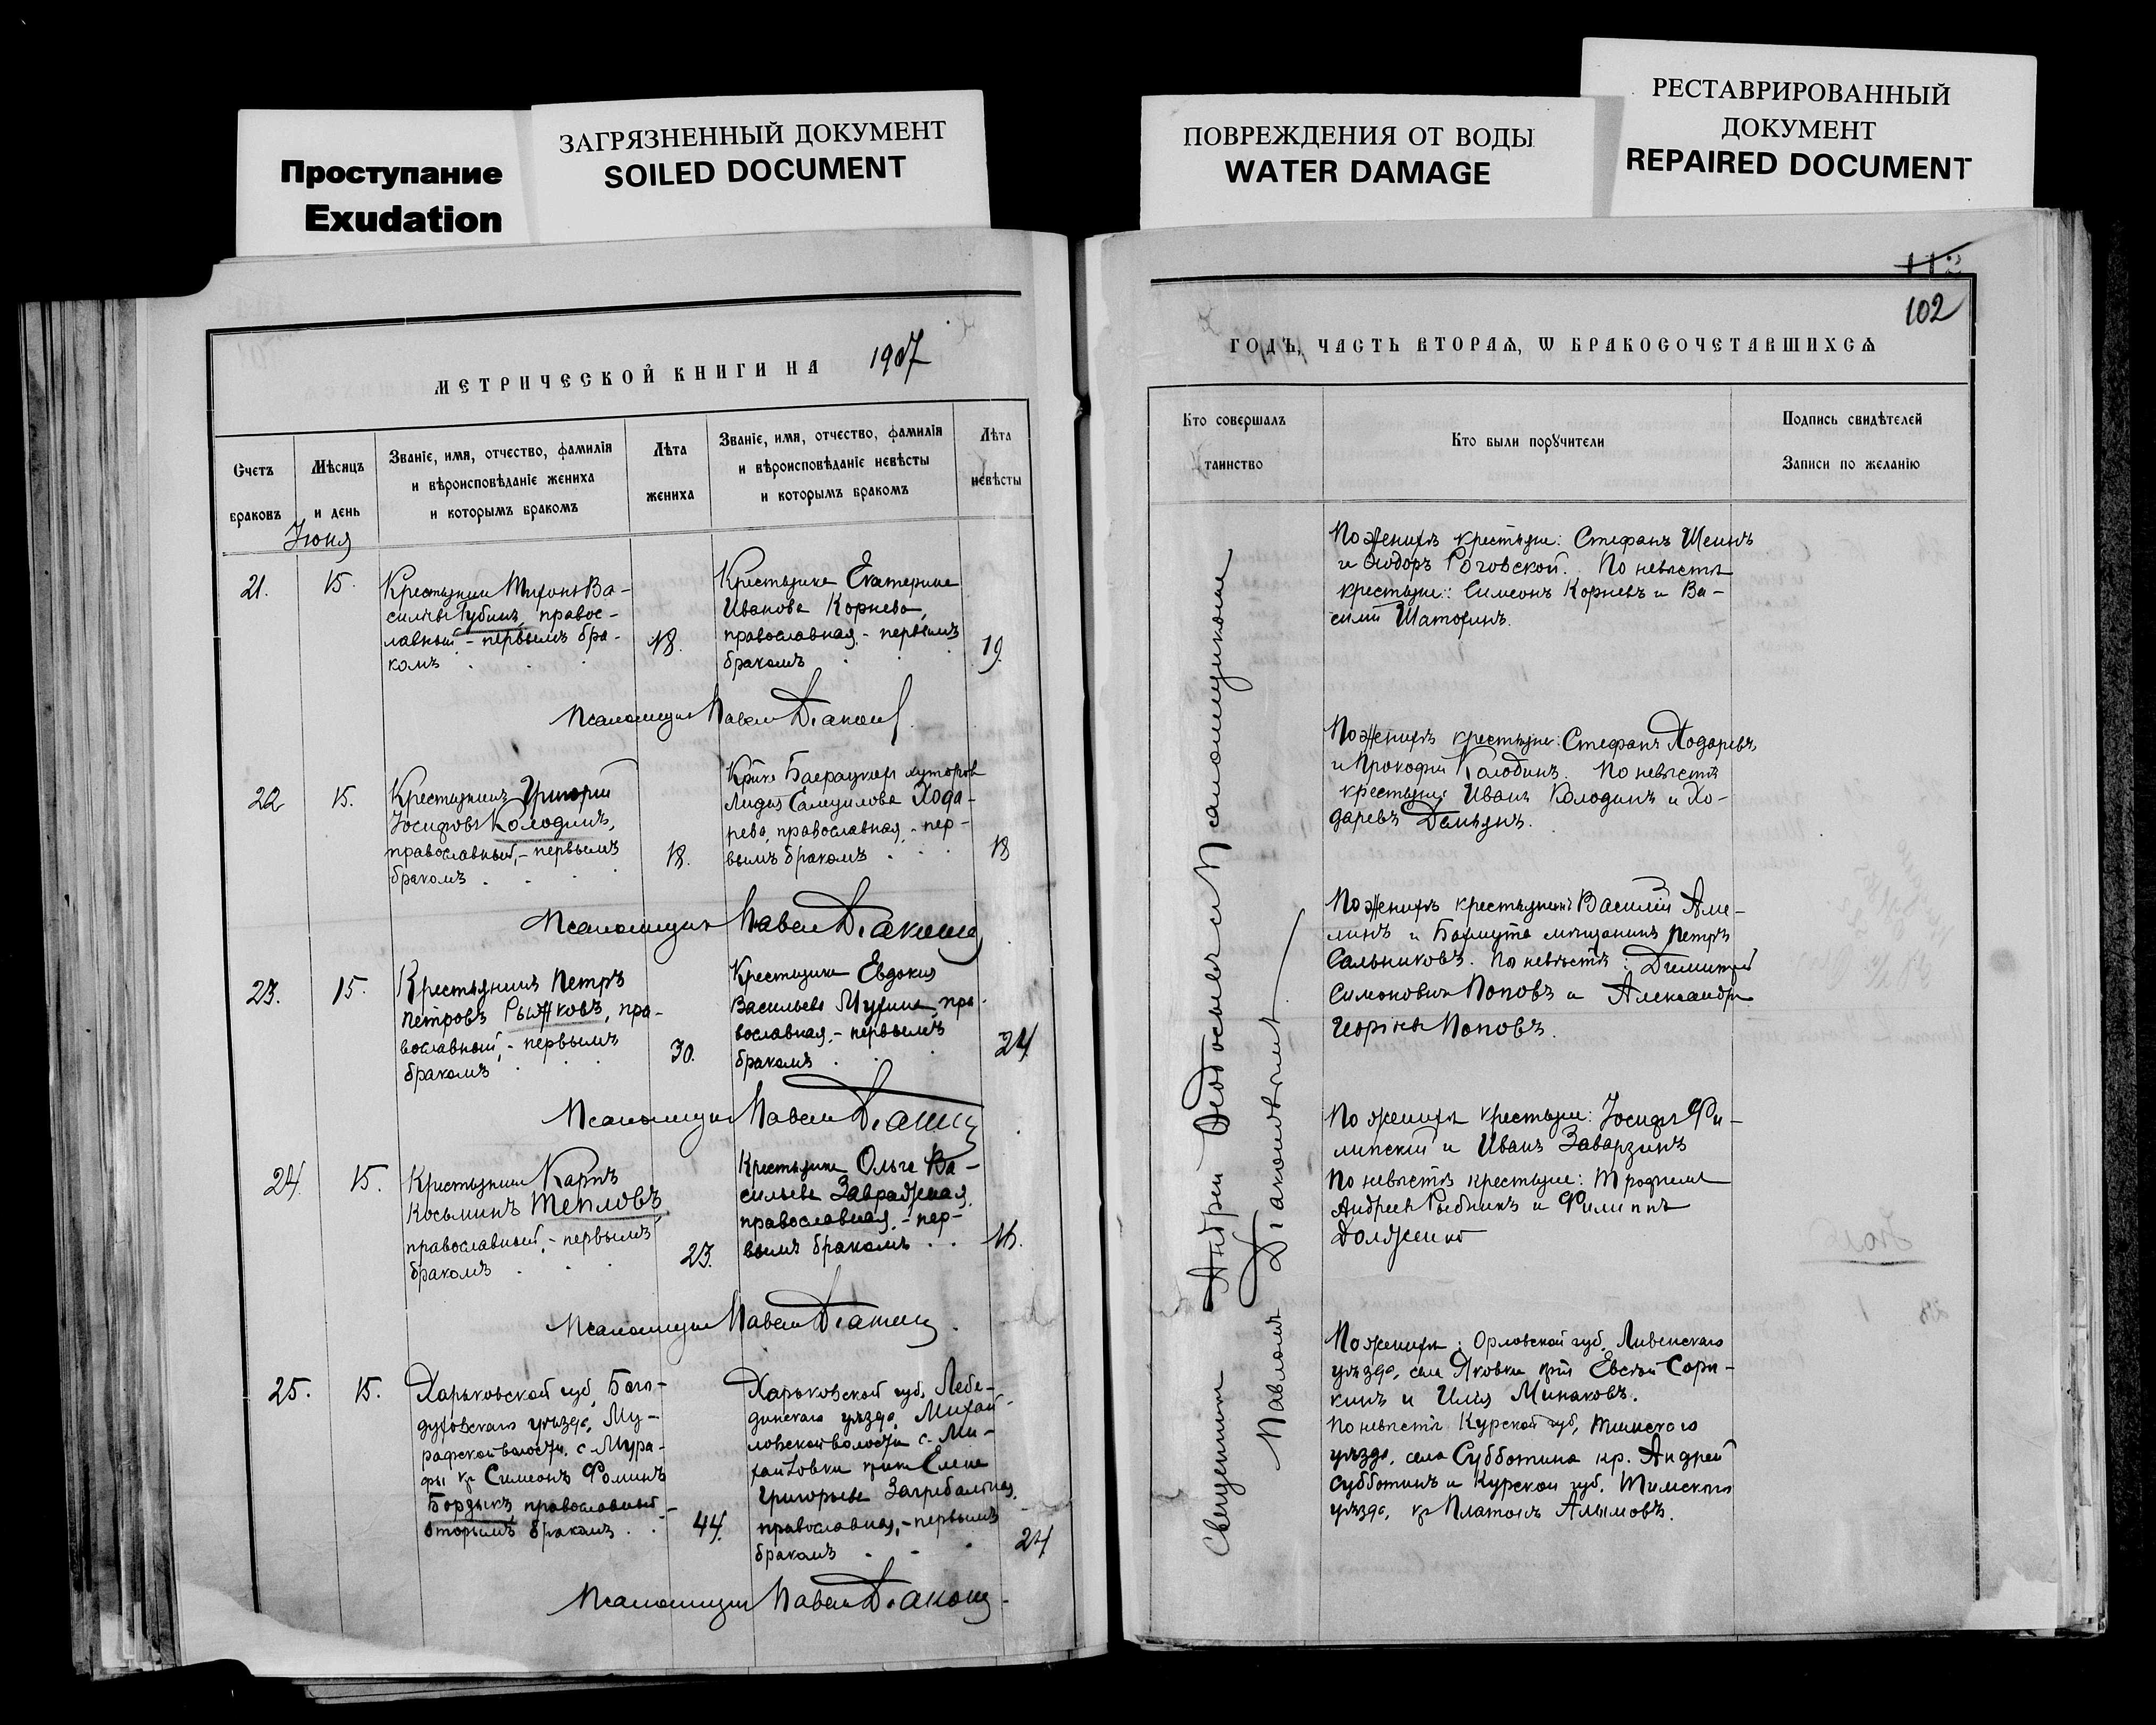 Проступание
Exudation
ЗАГРЯЗНЕННЫЙ ДОКУМЕНТ
SOILED DOCUMENT
ПОВРЕЖДЕНИЯ ОТ ВОДЫ
WATER DAMAGE
РЕСТАВРИРОВАННЫЙ
ДОКУМЕНТ
REPAIRED DOCUMENT
МЕТРИЧЕСКОЙ КНИГИ НА 1907
Счетъ
браковъ
Мѣсяцъ
и день
Званіе, имя, отчество, фамилія
и вѣроисповѣданіе жениха
и которымъ бракомъ
Лѣта
жениха
Званіе, имя, отчество, фамилія
и вѣроисповѣданіе невѣсты
и которымъ бракомъ
Лѣта
невѣсты
Іюня
21.
15.
Крестьянинъ Тихонъ Ва-
сильевъ Губинъ, правос-
лавный - первымъ бра-
комъ
18.
Крестьянка Екатерина
Иванова Корнева,
православная - первымъ
бракомъ
19.
Псаломщикъ Павелъ
22
15.
Крестьянинъ Григорій
Іосифовъ Колодинъ,
православный, - первымъ
бракомъ
18.
хуторов
Лидия Самуилова Хода-
рева, православная, - пер-
вымъ бракомъ
18
Псаломщикъ Павелъ Дьяконовъ
23.
15.
Крестьянинъ Петръ
Петровъ Рыжковъ, пра-
вославный, - первымъ
бракомъ
30.
Крестьянка Евдокия
Васильева пра-
вославная, - первымъ
бракомъ
24
Псаломщикъ Павелъ
24.
15.
Крестьянинъ Карпъ
Косьминъ Тепловъ
православный, - первымъ
бракомъ
23.
Крестьянка Ольга Ва-
сильева Завражная,
православная, - пер-
вымъ бракомъ
16.
Псаломщикъ Павелъ
25.
15.
Харьковской губ, Бого-
духовскаго уѣзда, Му-
рафской волости, с. Мура-
фы кр Симеонъ Фоминъ
православный -
вторымъ бракомъ
44.
Харьковской губ, Лебе-
динскаго уѣзда, Михай-
ловской волости с. Ми-
хайловки Елена
Григорьева
православная, - первымъ
бракомъ
24
Псаломщикъ Павелъ
112
102
ГОДЪ, ЧАСТЬ ВТОРАѦ, Ѡ БРАКОСОЧЕТАВШИХСѦ
Кто совершалъ
таинство
Кто были поручители
Подпись свидѣтелей
Записи по желанію
Священникъ Андрей съ Псаломщикомъ
Павломъ Дьяконовымъ
По женихѣ крестьяне: Стефанъ Шеинъ
и Ѳеодоръ Роговской. По невѣстѣ
крестьяне: Симеонъ Корневъ и Ва-
силій Шатохинъ.
По женихѣ крестьяне: Стефанъ Ходаревъ
и Прокофій Колодинъ. По невѣстѣ
крестьяне Иванъ Колодинъ и Хо-
даревъ Демьянъ.
По женихѣ крестьянинъ Василій Аме-
линъ и Бахмута мѣщанинъ Петръ
Сальниковъ. По невѣстѣ: Димитрій
Симоновичъ Поповъ и Александръ
Поповъ.
По женихѣ крестьяне: Іосифъ Фи-
липскій и Иванъ Заварзинъ
По невѣстѣ крестьяне: Трофимъ
Андреевъ Рыбникъ и Филиппъ
Долженко
По женихѣ: Орловской губ. Ливенскаго
уѣзда, села Яковки Евсѣй Сори-
кинъ и Илія Минаковъ.
По невѣстѣ Курской губ, Тимскаго
уѣзда, села Субботина кр. Андрей
Субботинъ и Курской губ. Тимскаго
уѣзда, кр Платонъ Алымовъ.